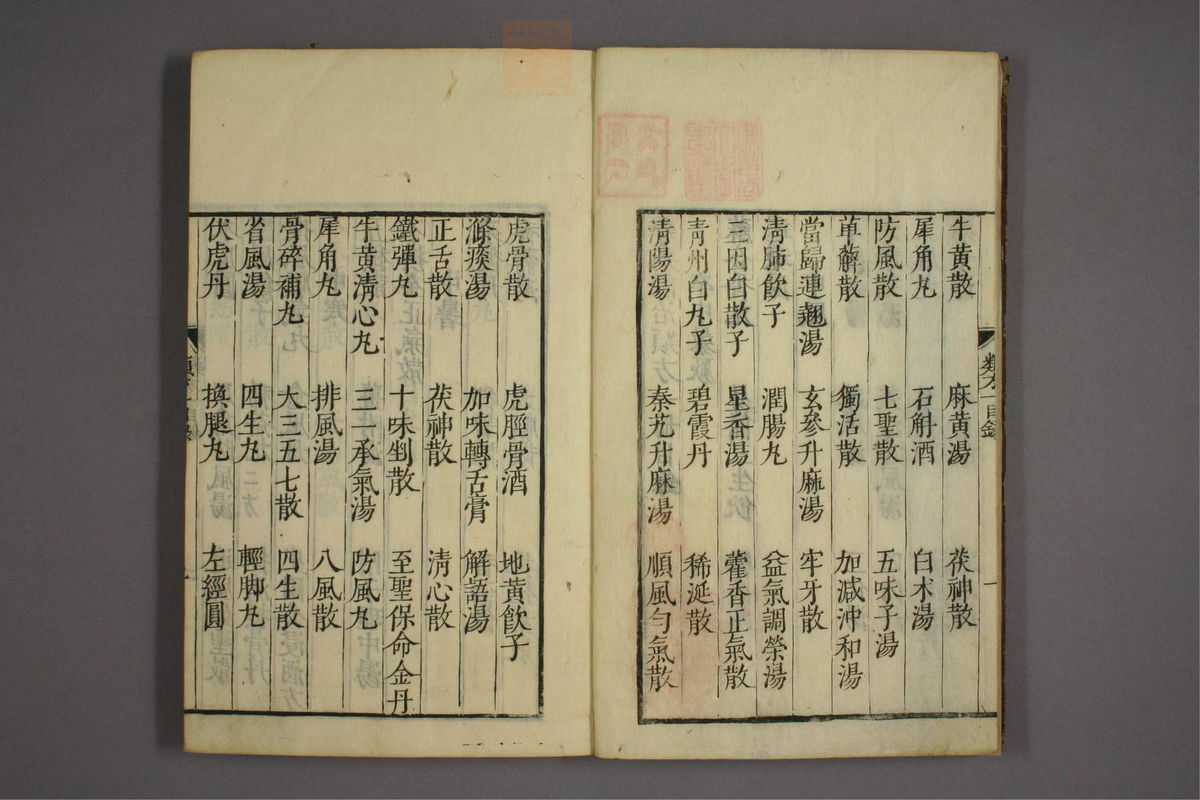 牛黄散 麻黄湯 茯神散
犀角丸 石斛酒 白术湯
防風散 七聖散 五味子湯
萆薢散 獨活散 加减沖和湯
當歸連翹湯 玄參升麻湯 牢牙散
淸肺飲子 潤腸丸 益氣調榮湯
三因白散子 星香湯 藿香正氣散
靑州白丸子 碧霞丹 稀涎散
淸陽湯 秦艽升麻湯 順風勻氣散
虎骨散 虎脛骨酒 地黄飲子
滌痰湯 加味轉舌膏 解語湯
正舌散 茯神散 淸心散
鐵彈丸 十味剉散 至聖保命金丹
牛黄淸心丸 三一承氣湯 防風丸
犀角丸 排風湯 八風散
骨碎補丸 大三五七散 四生散
省風湯 四生丸 輕脚丸
伏虎丹 換腿丸 左經圓
類方一目錄 一